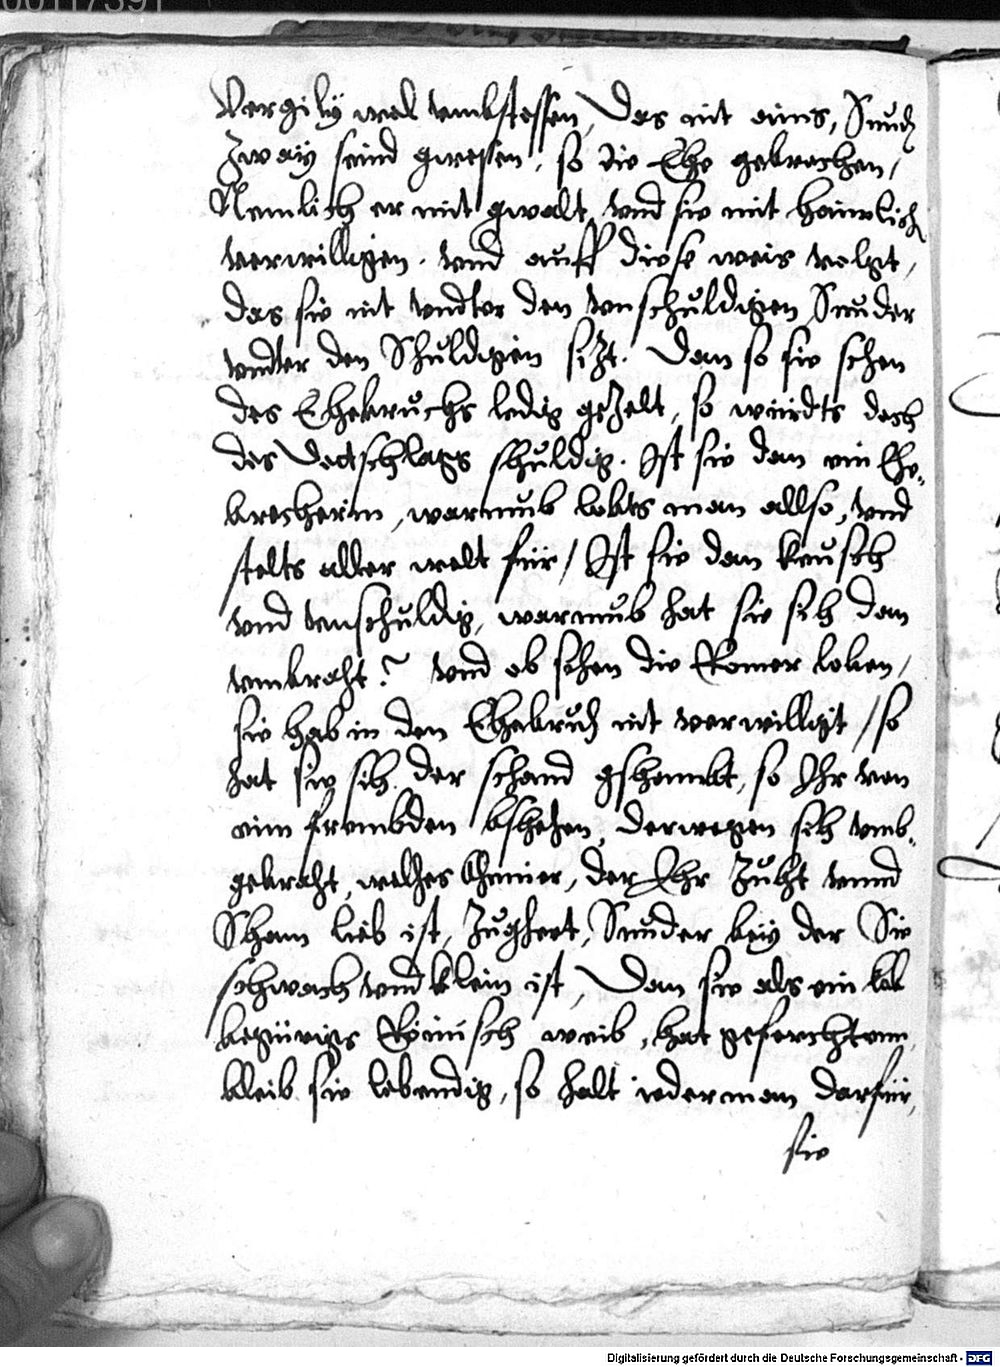 00117391
Vergilÿ wol umbstossen, Das nit ains, Sunder
Zwaÿ seind gwessen, so die Ehe gebrochen,
Nemlich er mit gwalt, vnd sie mit haimlich
verwilligen. vnd auff diese weis volgt,
das sie nit vndter den vnschuldigen Sunder
vndter den Schuldigen sizt. Dan so sie schon
des Ehebruchs ledig gezelt, so würdts doch
des Dottschlags schuldig. Ist sie dan ein Ehe-
brecherin, warumb lobts man allso, vnd
stelts aller welt für / Ist sie dan keusch
vnd vnschuldig, warumb hat sie sich dan
vmbracht? vnd ob schon die Romer loben,
sie hab in den Ehebruch nit verwilligt / so
hat sie sich der schand gschembt, so Ihr von
eim frembden bschehen, derwegen sich vmb-
gebracht, welches Cheiner, der Ehr Zucht vnnd
Scham lieb ist, Zughert, Sunder beÿ der Sie
schwach vnd klein ist, Dan sie als ein lob
begürigs Römisch weib, hat geforchten,
bleib sie lebendig, so halt iederman darfür,
sie
Digitalisierung gefördert durch die Deutsche Forschungsgemeinschaft - DFG